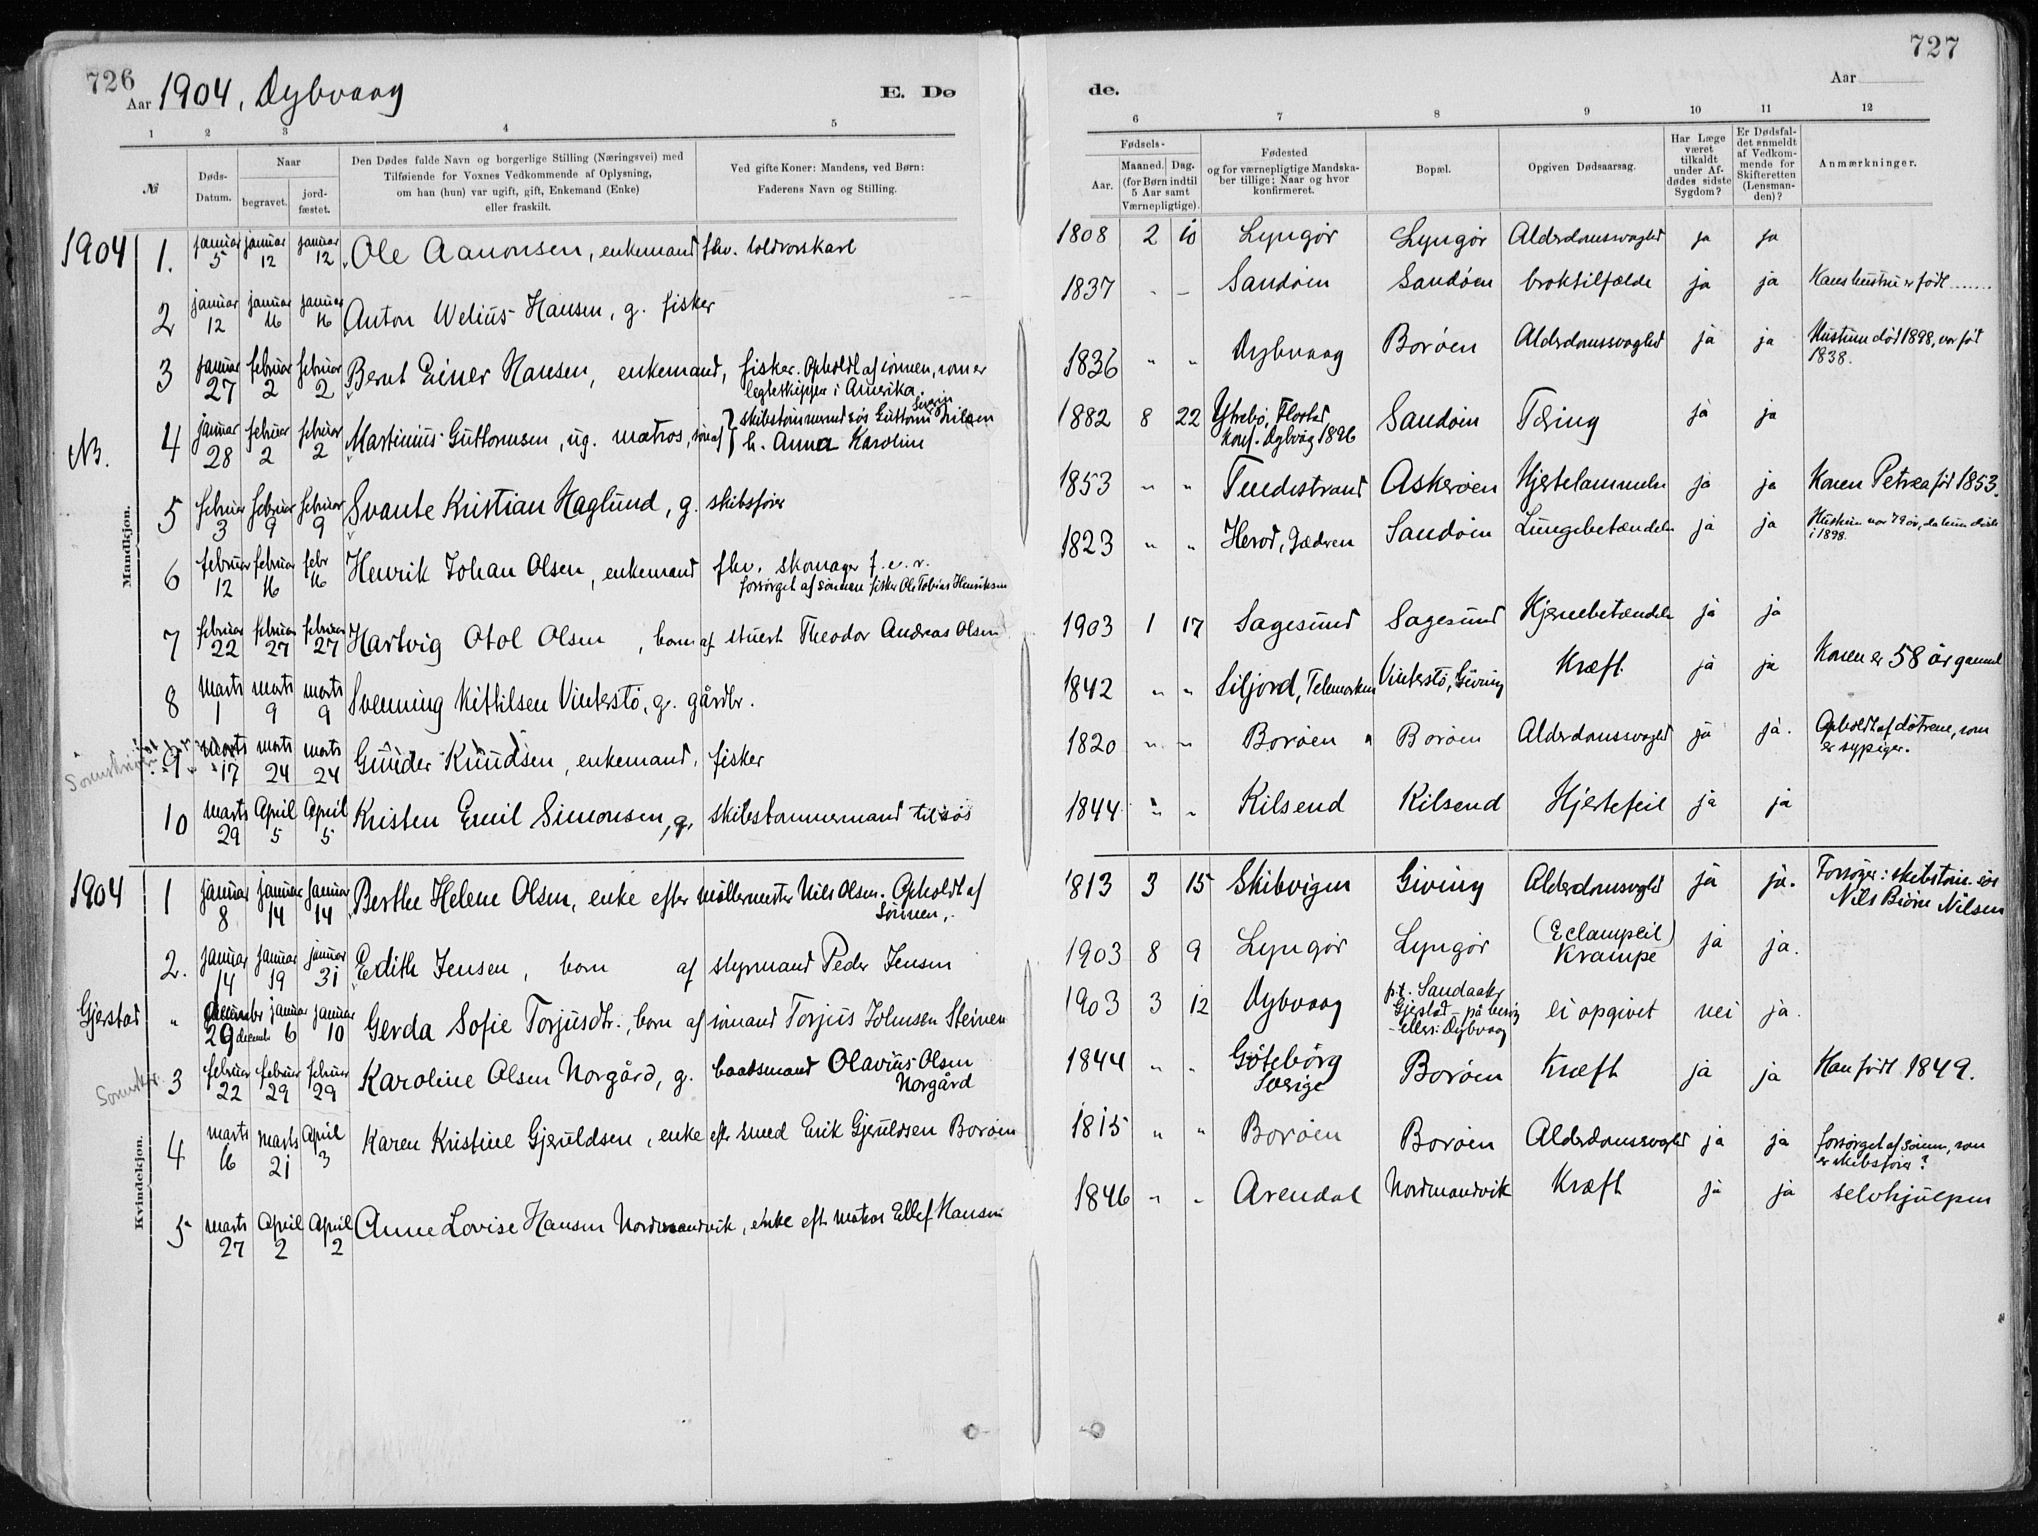 726
Aar 1904, Dybvaag
E. Dø
de.
727
Aar
1 2 3 4 5 6 7 8 9 10 11 12
№
Døds-Datum.
Naar
begravet.
jord-fæstet.
Den Dødes fulde Navn og borgerlige Stilling (Næringsvei) med
Tilføiende for Voxnes Vedkommende af Oplysning,
om han (hun) var ugift, gift, Enkemand (Enke)
eller fraskilt.
Ved gifte Koner: Mandens, ved Børn:
Faderens Navn og Stilling.
Fødsels-
Aar.
Maaned. Dag.
(for Børn indtil
5 Aar samt
Værnepligtige).
Fødested
og for værnepligtige Mandska-
ber tillige: Naar og hvor
konfirmeret.
Bopæl.
Opgiven Dødsaarsag.
Har Læge
været
tilkaldt
under Af-
dødes sidste
Sygdom?
Er Dødsfal-
det anmeldt
af Vedkom-
mende for
Skifteretten
(Lensman-
den)?
Anmærkninger.
Mandkjøn.
1904 1. januar 5 januar 12 januar 12 Ole Aanonsen, enkemand fhv. toldrorskarl 1808 2 10 Lyngør Lyngør Alderdomssvaghed ja ja
2 januar 12 januar 16 januar 16 Anton Welius Hansen, g. fisker 1837 - - Sandøen Sandøen broktilfælde ja ja Hans hustru er født .......
3 januar 27 februar 2 februar 2 Bernt Einer Hansen, enkemand, fisker. Opholdt af sønnen, som er
legteskipper i Amerika. 1836 " " Dybvaag Borøen Alderdomssvaghed ja ja Hustruen død 1898, var født
1838.
NB. 4 januar 28 februar 2 februar 2 Martinius Guttormsen, ug. matros, søn af skibstømmermand søs Guttorm Severin Nilsen
h. Anna Karoline 1882 8 22 Ytrebø, Flosta
konf. Dybvåg 1896 Sandøen Tæring ja ja
5 februar 3 februar 9 februar 9 Svante Kristian Haglund, g. skibsfører 1853 " " Tvedestrand Askerøen Hjertelammelse ja ja Konen Petrea født 1853.
6 februar 12 februar 16 febr 16 Henrik Johan Olsen, enkemand fhv. skomager f. e. v.
forsørget af sønnen fisker Ole Tobias Henriksen 1823 " " Herod, Jædren Sandøen Lungebetændelse ja ja Hustruen var 79 år, da hun døde
i 1898.
7 februar 22 februar 27 februar 27 Hartvig Otol Olsen, barn af stuert Theodor Andreas Olsen 1903 1 17 Sagesund Sagesund Hjernebetændelse ja ja
8 marts 1 marts 9 marts 9 Svenning Kittilsen Vinterstø, g. gårdbr. 1842 " " Siljord, Telemarken Vinterstø, Giving Kræft ja ja Konen er 58 år gammel
9 marts 17 marts 24 marts 24 Gunder Knudsen, enkemand, fisker 1820 " " Borøen Borøen Alderdomssvaghed ja ja. Opholdt af døtrene, som
er sypiger.
10 marts 29 April 5 April 5 Kristen Emil Simonsen, g. skibstømmermand tilsøs 1844 " " Kilsend Kilsend Hjertefeil ja ja
Kvindekjøn.
1904 1 januar 8 januar 14 januar 14 Berthe Helene Olsen, enke efter møllermester Nils Olsen. Opholdt af
Sønnen. 1813 3 15 Skibvigen Giving Alderdomsvaghed ja ja. Forsørger: skibstøm. søs
Nils Bjørn Nilsen
2. januar 14 januar 19 januar 31 Edith Jensen, barn af styrmand Peder Jensen 1903 8 9 Lyngør Lyngør (Eclampsii)
Krampe ja ja.
Gjerstad " december 29 januar 6 januar 10 Gerda Sofie Torjusdtr., barn af sømand Torjus Johnsen Steinen 1903 3 12 Dybvaag p.t. Sandaaker
Gjerstad - på besøg
- ellers: Dybvaag ei opgivet nei ja.
3 februar 22 februar 29 februar 29 Karoline Olsen Norgård, g. baadsmand Olavius Olsen
Norgård 1844 " " Göteborg
Sverige Borøen Kræft ja ja Han født 1849.
4 marts 16 marts 21 April 3 Karen Kristine Gjeruldsen, enke efter smed Erik Gjeruldsen Borøen 1815 " " Borøen Borøen Alderdomssvaghed ja ja forsørget af sønnen, som
er skibsfører?
5 marts 27 April 2 April 2 Anne Lovise Hansen Nordmandvik, enke eft. matros Ellef Hansen 1846 " " Arendal Nordmandvik Kræft ja ja selvhjulpen